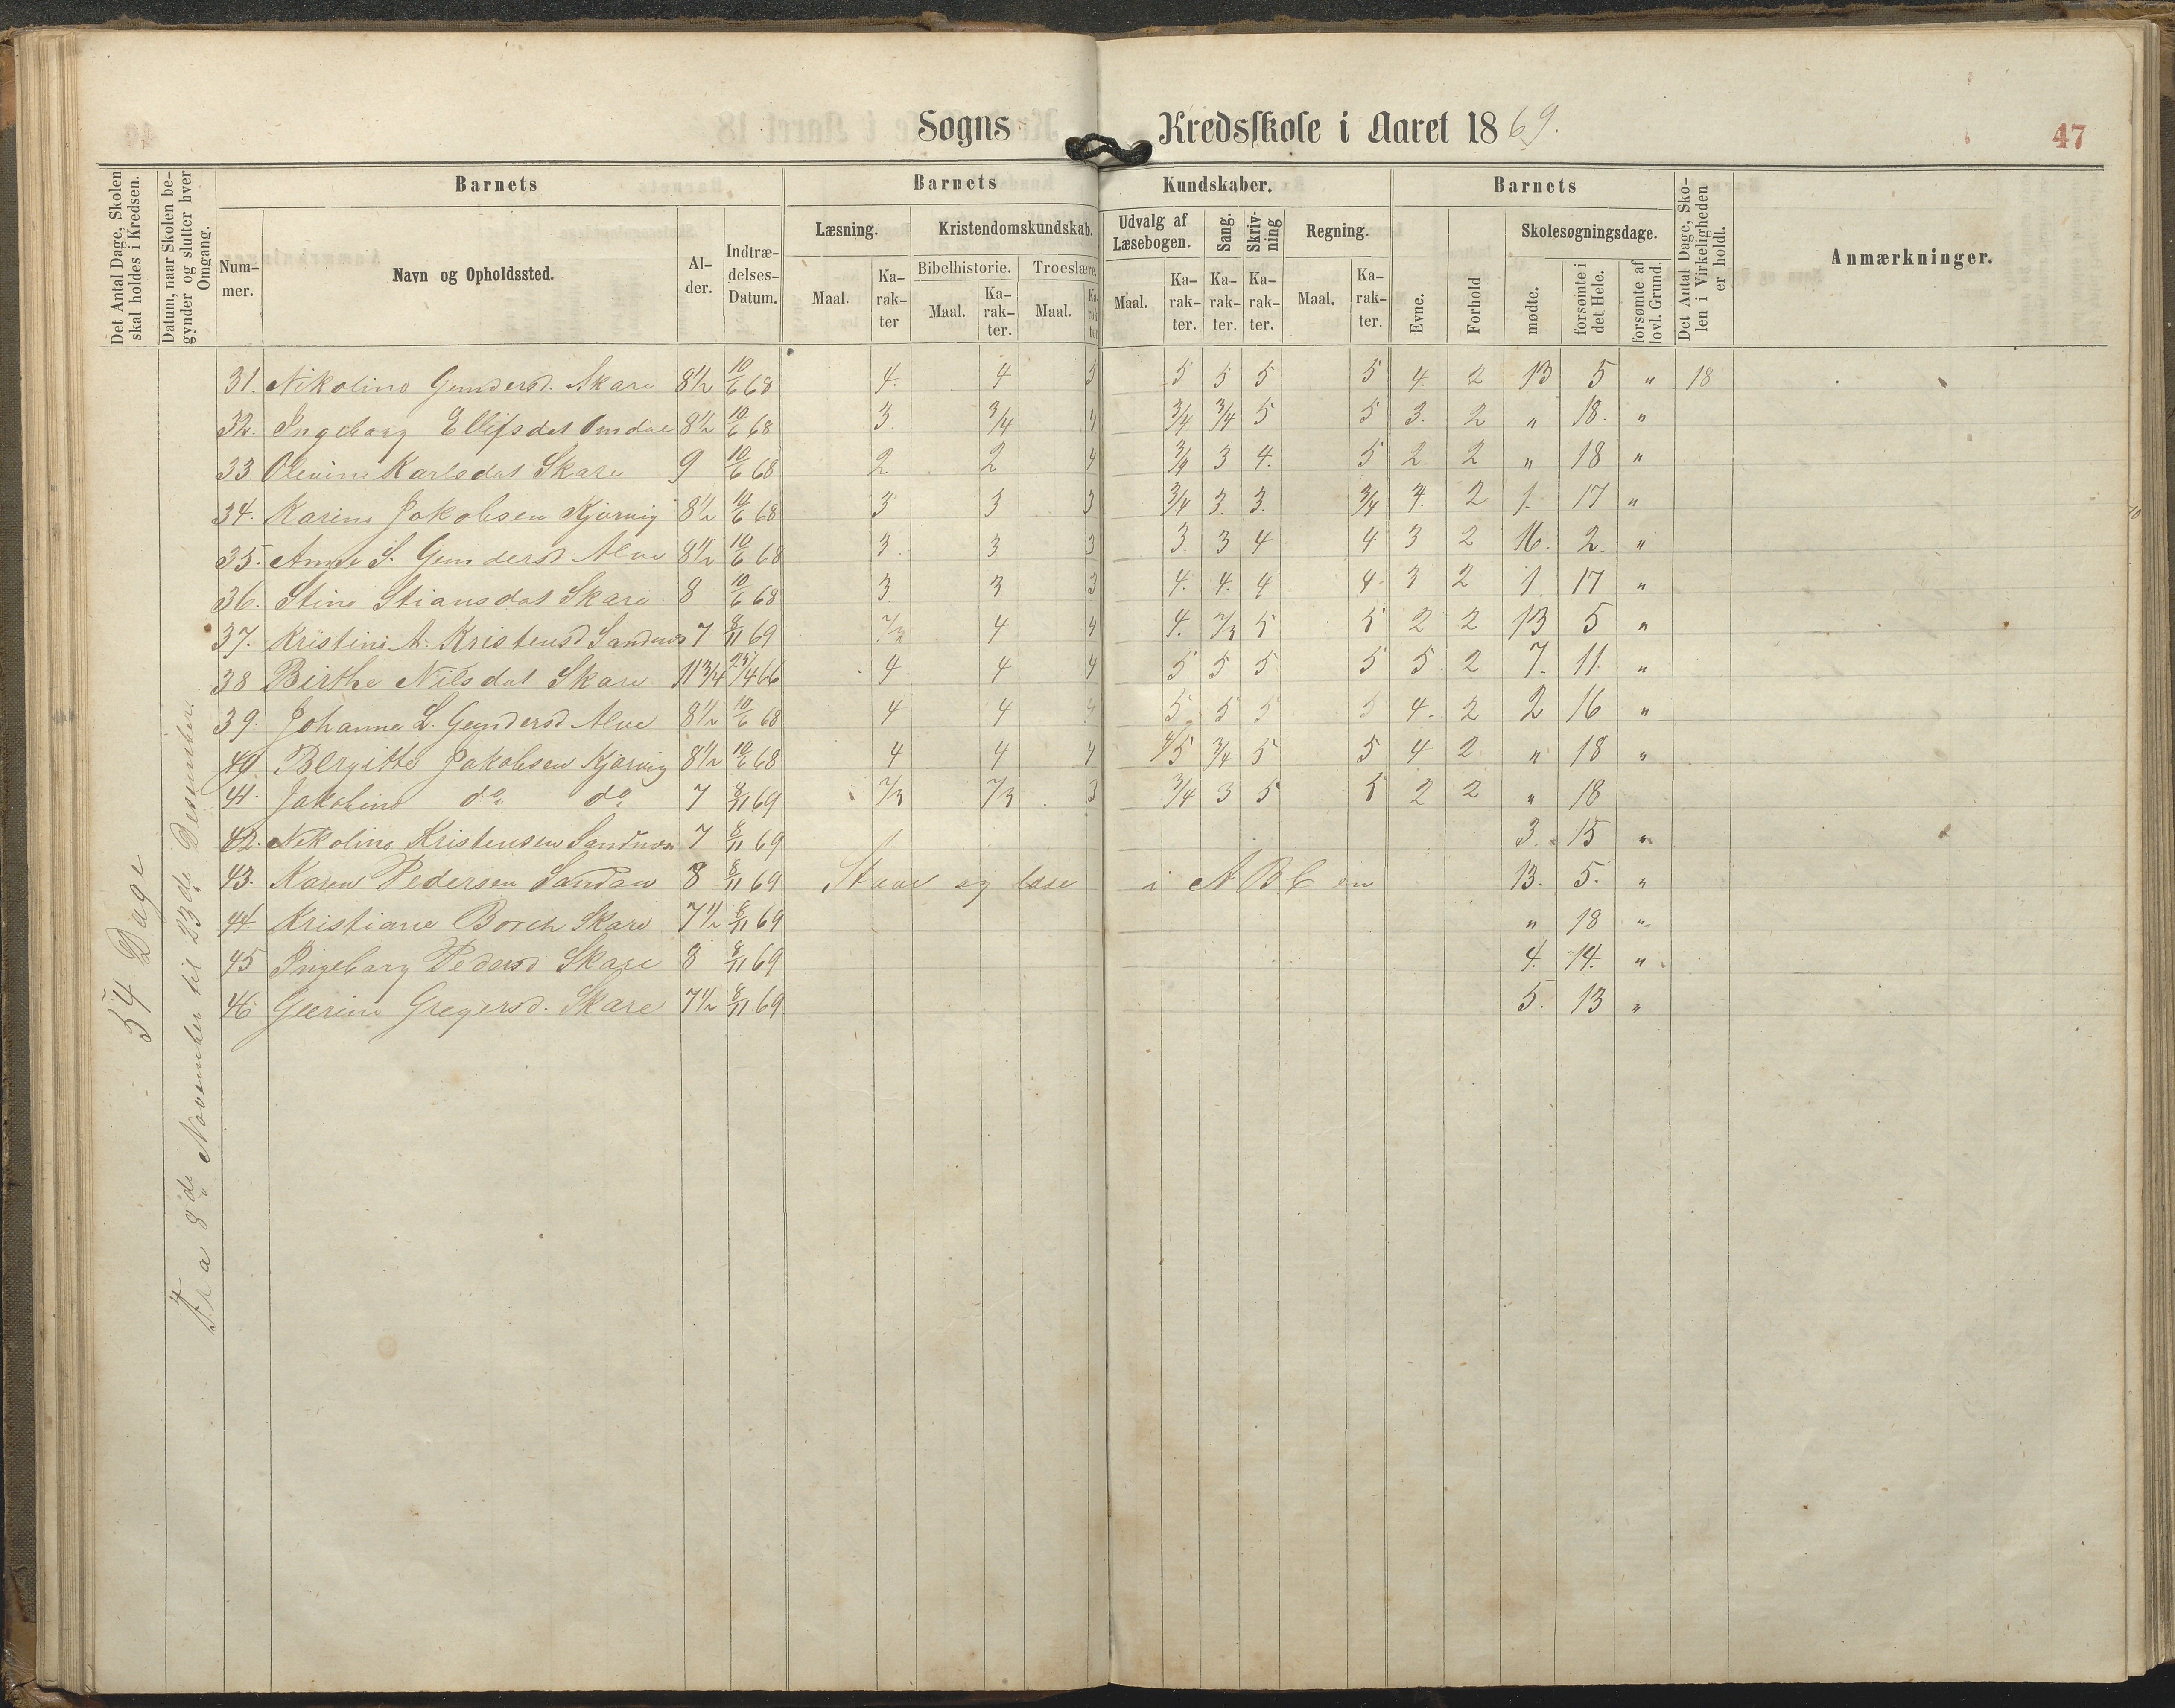 Sogns Kredsskole i Aaret 1869.
47
Det Antal Dage, Skolen skal holdes i Kredsen.
Datum, naar Skolen begynder og slutter hver Omgang.
Barnets
Barnets Kundskaber.
Barnets
Det Antal Dage, Skolen i Virkeligheden er holdt.
Anmærkninger.
Nummer.
Navn og Opholdssted.
Alder.
Indtrædelses-Datum.
Læsning.
Kristendomskundskab.
Udvalg af Læsebogen.
Sang.
Skrivning
Regning.
Evne.
Forhold
Skolesøgningsdage.
Bibelhistorie.
Troeslære.
Maal.
Karakter
Maal.
Karakter.
Maal.
Karakter
Maal.
Karakter.
Karakter.
Karakter.
Maal.
Karakter.
mødte.
forsømte i det Hele.
forsømte af lovl. Grund.
54 Dage
Fra 8de November til 23de Desember.
31. Nikoline Gundersd. Skare 8½ 10/6 68 4. 4 5 5 5 5 5 4. 2 13 5 " 18
32. Ingeborg Ellefsdat Omdal 8½ 10/6 68 3. 3/4 4 3/4 3/4 5 5 3. 2 " 18. "
33. Olevine Karlsdat Skare 9 10/6 68 2 2 4 3/4 3 4. 5 2. 2 " 18 "
34. Karine Jakobsen Kjørvig 8½ 10/6 68 3 3 3 3/4 3. 3. 3/4 4. 2 1. 17 "
35. Anne S. Gundersd Alve 8½ 10/6 68 3. 3 3 3. 3 4 4 3 2 16. 2. "
36. Stine Stiansdat Skare 8 10/6 68 3 3 3 4. 4. 4 4. 3 2 1 17 "
37. Kristine A. Kristensd Sandnæs 7 8/11 69 2/3 4 4 4. 2/3 5 5 2 2 13 5 "
38 Birthe Nilsdat Skare 11¾ 25/4 66 4 4 4 5 5 5 5 5. 2 7. 11. "
39. Johanne L. Gundersd Alve 8½ 10/6 68 4 4 4 5. 5 5 5 4. 2 2 16 "
40. Bergitte Jakobsen Kjørvig 8½ 10/6 68 4 4 4 4/5 3/4 5 5 4 2 " 18 "
41. Jakobine do do 7 8/11 69 2/3 2/3 3 3/4 3 5 5 2 2 " 18
42. Nikoline Kristensen Sandnæs 7 8/11 69 3. 15 "
43. Karen Pedersen Sandau 8 8/11 69 Stave og læse i ABCen 13. 5. "
44. Kristiane Borch Skare 7½ 8/11 69 " 18 "
45 Ingeborg Pedersd Skare 8 8/11 69 4. 14. "
46 Geerine Gregersd. Skare 7½ 8/11 69 5. 13 "